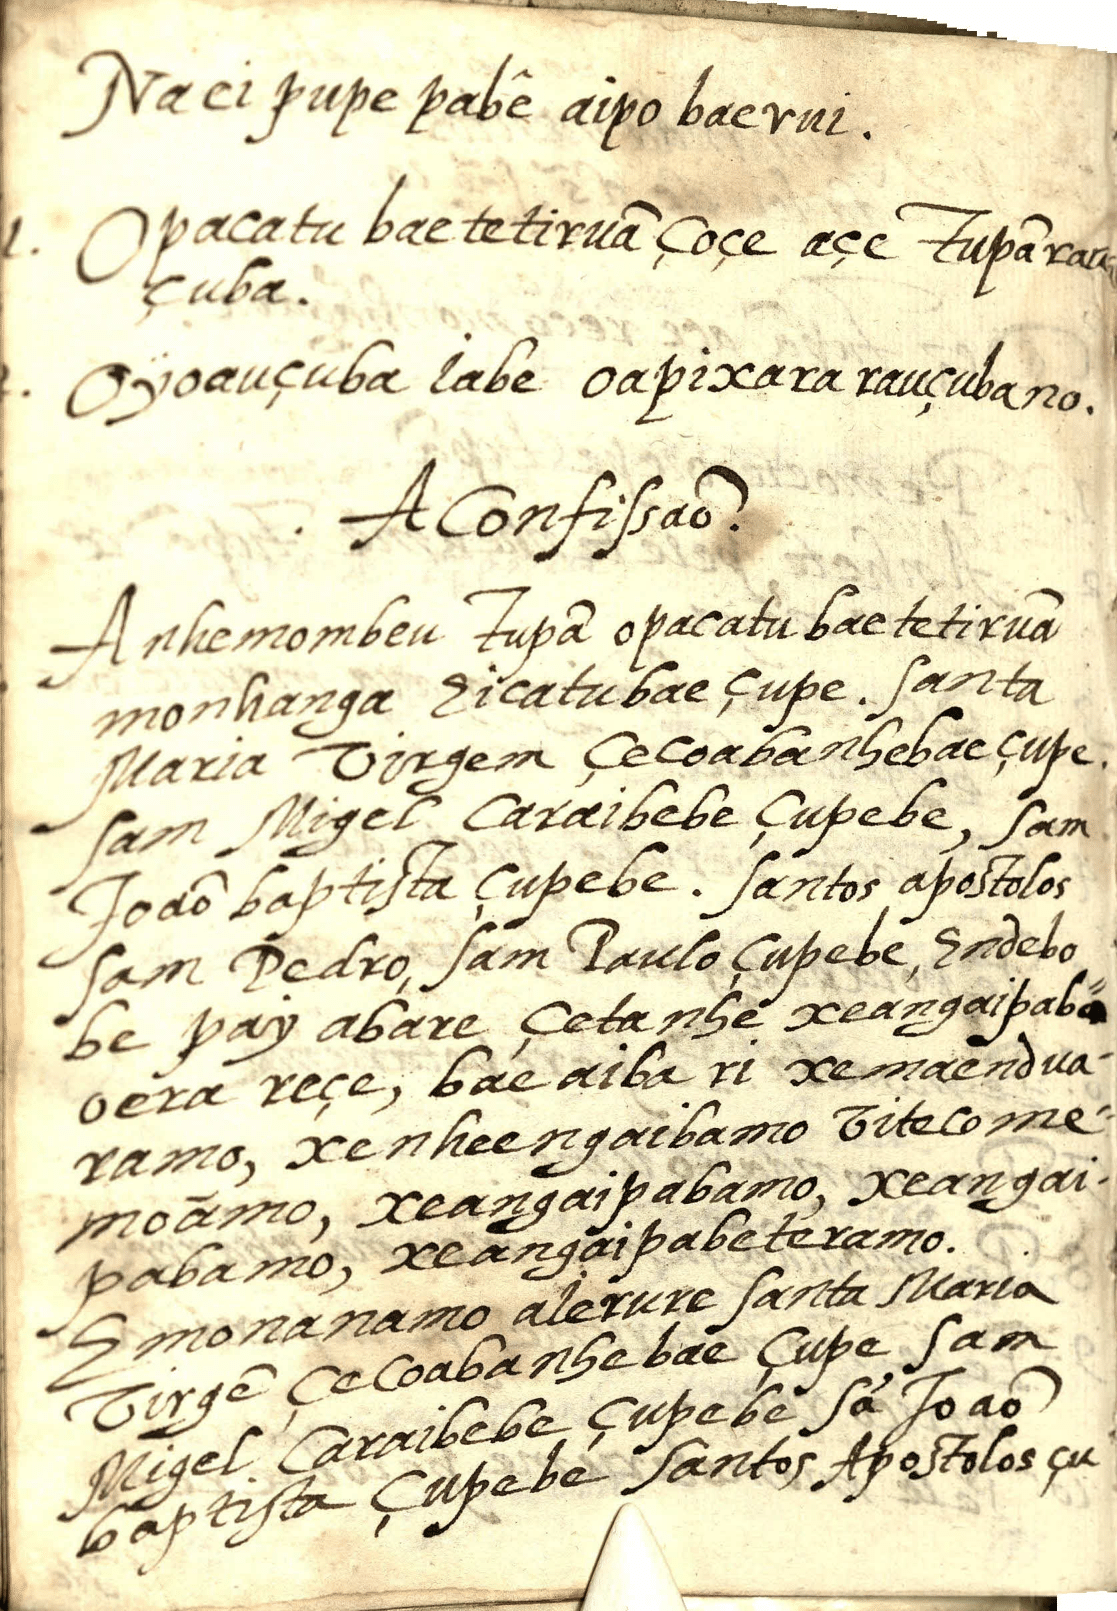 Naci pupe pabê aipo baerui.
1. Opacatu baetetiruã çoçe açe Tupã rau
çuba.
2. Oÿoauçuba iabe oapixara rauçubano.
A Confissaõ.
Anhemombeu Tupã opacatu baetetiruã
monhanga Eicatubae çupe. Santa
Maria Virgem çecoabanhebae çupe.
Sam Migel Caraibebe çupebe, Sam
Joaõ baptista çupebe. Santos apostolos
Sam Pedro, Sam Paulo çupebe, Endebo
be pay abare çetanhe xeangaipaba
oera reçe, bae aiba ri xemaendua-
ramo, xenheengaibamo Vitecome-
moãmo, xeangaipabamo, xeangai-
pabamo, xeangaipabeteramo.
Emonanamo aierure Santa Maria
Virgẽ çecoabanhebae çupe Sam
Migel Caraibebe çupebe Sã Joaõ
baptista çupebe Santos Apostolos çu